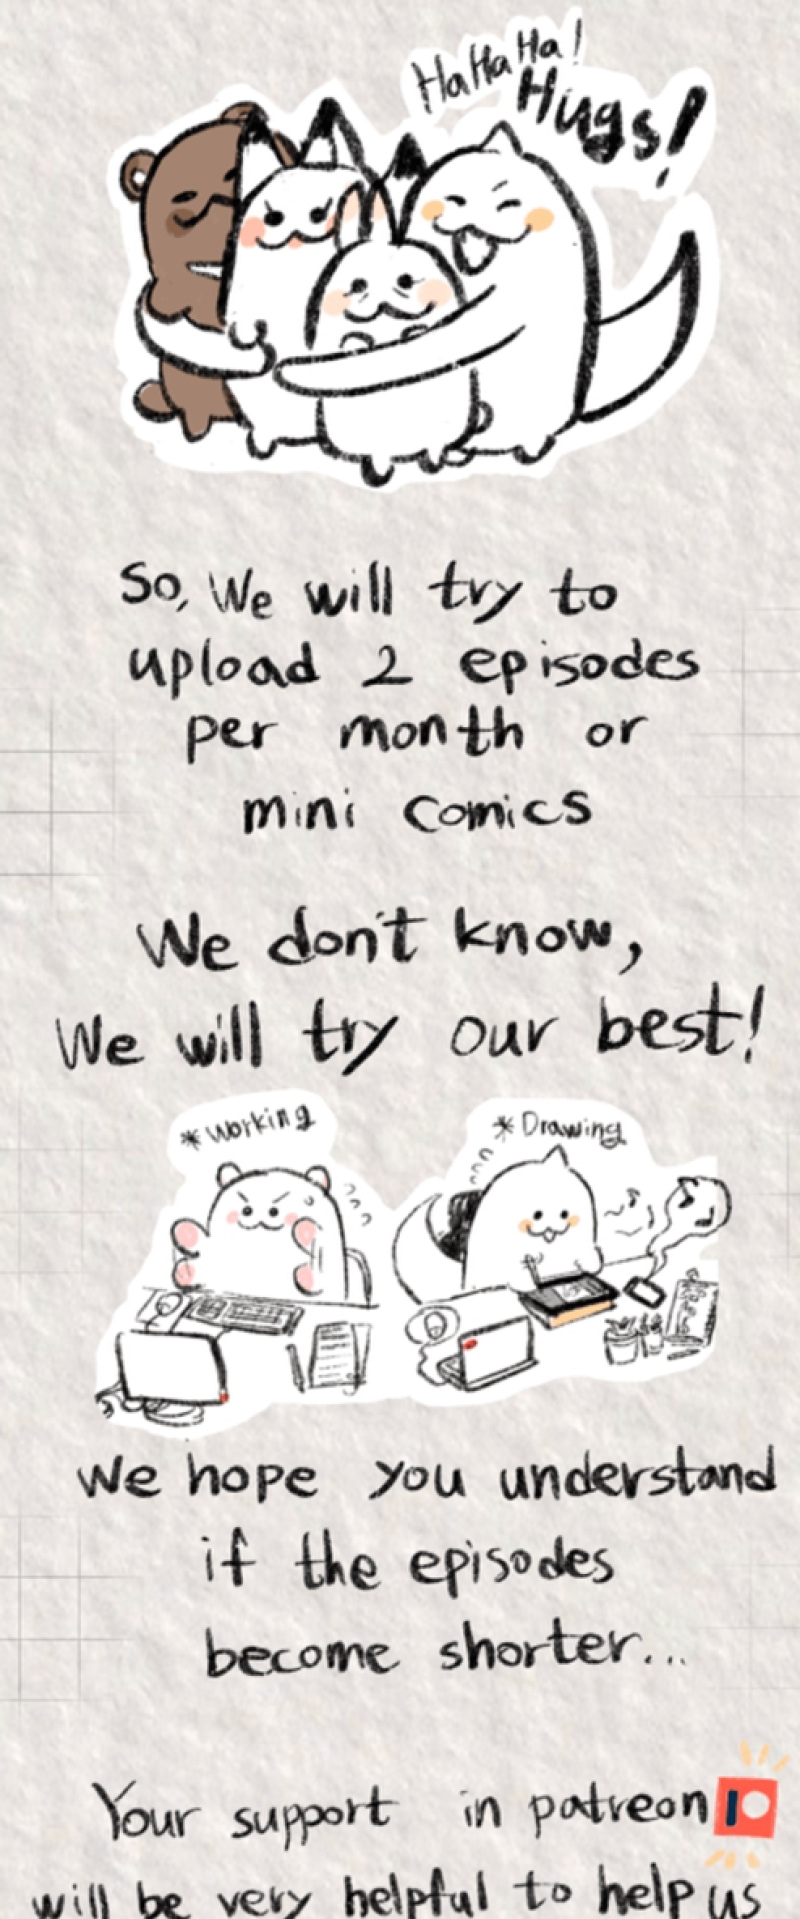 HaHaHa!
Hugs!
So, We will try to
upload 2 episodes
per month or
mini comics
We don't know,
We will try our best!
*Working
*Drawing
We hope you understand
if the episodes
become shorter...
Your support in patreon
will be very helpful to help us